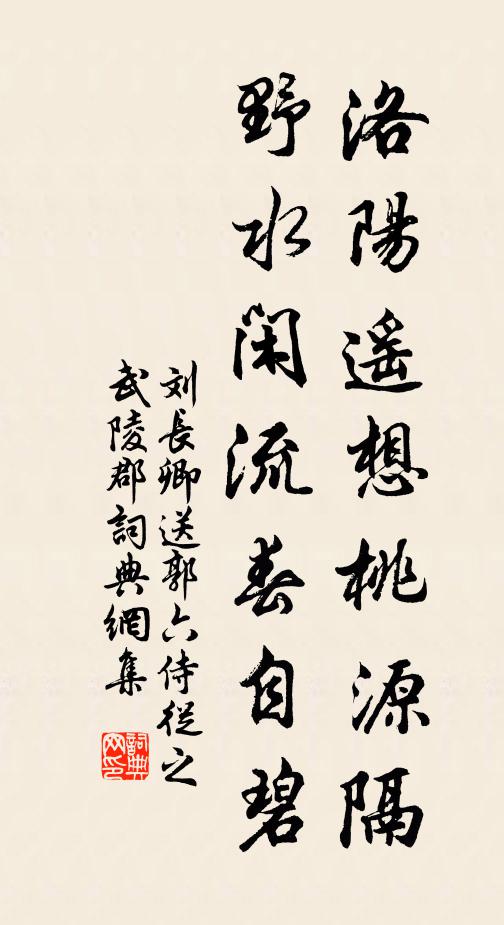 洛陽遥想桃源隔
野水閑流春自碧
刘長卿送郭六侍從之
武陵郡詞典網集
詞典網印